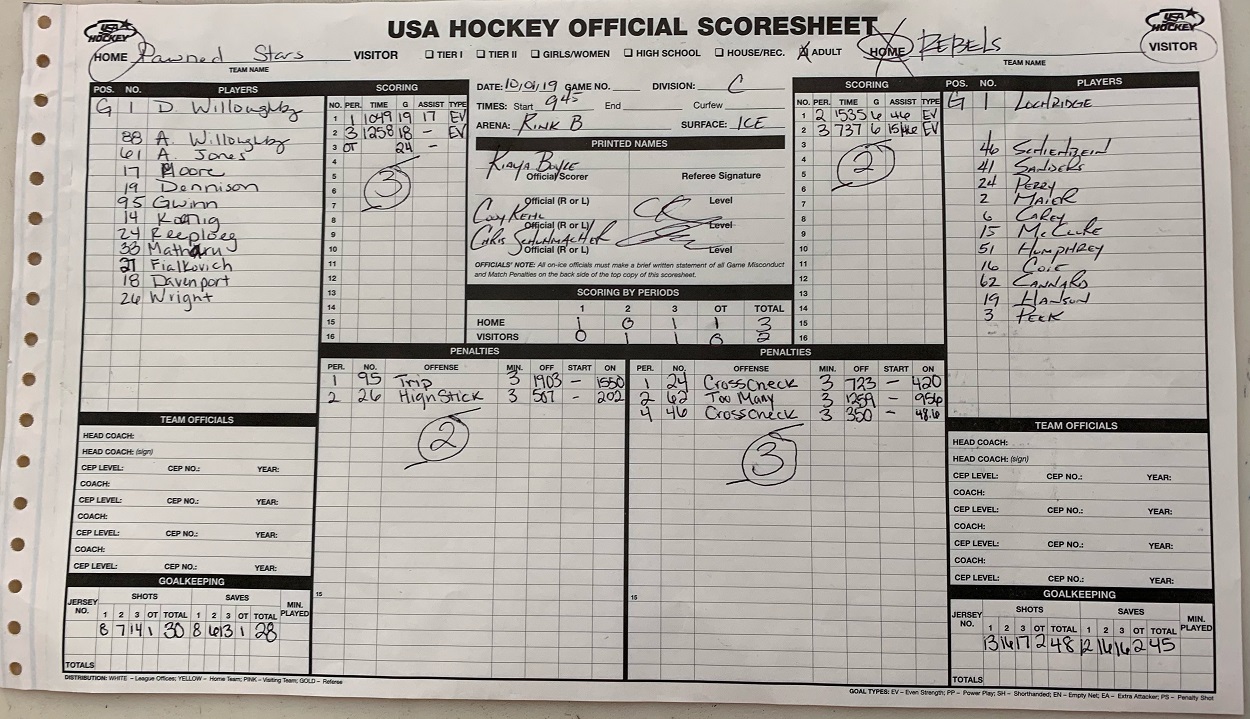 USA HOCKEY OFFICIAL SCORESHEET
USA HOCKEY
USA HOCKEY
HOME Pawned Stars VISITOR
TEAM NAME
☐ TIER I ☐ TIER II ☐ GIRLS/WOMEN ☐ HIGH SCHOOL ☐ HOUSE/REC. ☒ ADULT
HOME REBELS VISITOR
TEAM NAME
POS. NO. PLAYERS
G 1 D. Willoughby
88 A. Willoughby
61 A. Jones
17 Moore
19 Dennison
95 Gwinn
14 Koenig
24 Reeploeg
33 Matharu
27 Fialkovich
18 Davenport
26 Wright
SCORING
NO. PER. TIME G ASSIST TYPE
1 1 1049 19 17 EV
2 3 1258 18 - EV
3 OT 24 -
4
5
6
7
8
9
10
11
12
13
14
15
16
3
DATE: 10/01/19 GAME NO. DIVISION: C
TIMES: Start 945 End Curfew
ARENA: RINK B SURFACE: ICE
PRINTED NAMES
Kiaya Boyle
Official/Scorer Referee Signature
Official (R or L) Level
Cody Kehl
Official (R or L) Level
Chris Schuhmacher
Official (R or L) Level
OFFICIALS' NOTE: All on-ice officials must make a brief written statement of all Game Misconduct
and Match Penalties on the back side of the top copy of this scoresheet.
SCORING BY PERIODS
1 2 3 OT TOTAL
HOME 1 0 1 1 3
VISITORS 0 1 1 0 2
SCORING
NO. PER. TIME G ASSIST TYPE
1 2 1535 6 46 EV
2 3 737 6 15/46 EV
3
4
5
6
7
8
9
10
11
12
13
14
15
16
2
POS. NO. PLAYERS
G 1 LOCHRIDGE
46 SCHIENBEIN
41 SANDERS
24 PERRY
2 MAIER
6 CAREY
15 McCLURE
51 HUMPHREY
16 COLE
62 CANNARD
19 HANSON
3 PEEK
PENALTIES
PER. NO. OFFENSE MIN. OFF START ON
1 95 Trip 3 1903 - 1550
2 26 HighStick 3 507 - 202
2
15
PENALTIES
PER. NO. OFFENSE MIN. OFF START ON
1 24 CrossCheck 3 723 - 420
2 62 Too Many 3 1259 - 956
4 46 CrossCheck 3 350 - 48.6
3
15
TEAM OFFICIALS
HEAD COACH:
HEAD COACH: (sign)
CEP LEVEL: CEP NO.: YEAR:
COACH:
CEP LEVEL: CEP NO.: YEAR:
COACH:
CEP LEVEL: CEP NO.: YEAR:
COACH:
CEP LEVEL: CEP NO.: YEAR:
GOALKEEPING
JERSEY NO. SHOTS SAVES MIN. PLAYED
1 2 3 OT TOTAL 1 2 3 OT TOTAL
8 7 14 1 30 8 6 13 1 28
TOTALS
TEAM OFFICIALS
HEAD COACH:
HEAD COACH: (sign)
CEP LEVEL: CEP NO.: YEAR:
COACH:
CEP LEVEL: CEP NO.: YEAR:
COACH:
CEP LEVEL: CEP NO.: YEAR:
COACH:
CEP LEVEL: CEP NO.: YEAR:
GOALKEEPING
JERSEY NO. SHOTS SAVES MIN. PLAYED
1 2 3 OT TOTAL 1 2 3 OT TOTAL
13 16 17 2 48 12 16 16 2 45
TOTALS
DISTRIBUTION: WHITE – League Offices; YELLOW – Home Team; PINK – Visiting Team; GOLD – Referee
GOAL TYPES: EV – Even Strength; PP – Power Play; SH – Shorthanded; EN – Empty Net; EA – Extra Attacker; PS – Penalty Shot